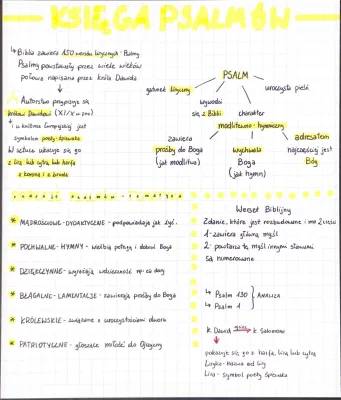 KSIĘGA PSALMÓW
↳ Biblia zawiera 150 wersów lirycznych - Psalmy
Psalmy powstawały przez wiele wieków
połowa napisana przez króla Dawida
Autorstwo przypisuje się
królowi Dawidowi (XI/X w pne)
↳ w kulturze Europejskiej jest
symbolem poety-śpiewaka
W sztuce ukazuje się go
z lirą lub cytrą lub harfą
z koroną i z brodą
PSALM
gatunek liryczny
uroczysta pieśń
wywodzi
się z Biblii
charakter
modlitewno-hymniczny
zawiera
prośby do Boga
(jak modlitwa)
wychwala
Boga
(jak hymn)
adresatem
najczęściej jest
Bóg
rodzaje psalmów - tematyka
* MĄDROŚCIOWE-DYDAKTYCZNE - podpowiadają jak żyć
* POCHWALNE-HYMNY - wielbią potęgę i dobroć Boga
* DZIĘKCZYNNE - wyrażają wdzięczność np. za dary
* BŁAGALNE-LAMENTACJE - zawierają prośby do Boga
* KRÓLEWSKIE - związane z uroczystościami dworu
* PATRIOTYCZNE - głoszące miłość do Ojczyzny
Werset Biblijny
Zdanie, które jest rozbudowane i ma 2 części
1 - zawiera główną myśl
2 - powtarza tę myśl innymi słowami
są numerowane
↳ Psalm 130
↳ Psalm 1
ANALIZA
K. Dawid → K. Salomon
pokazuje się go z harfą, lirą lub cytrą
Liryka - nazwa od liry
Lira - symbol poety śpiewaka